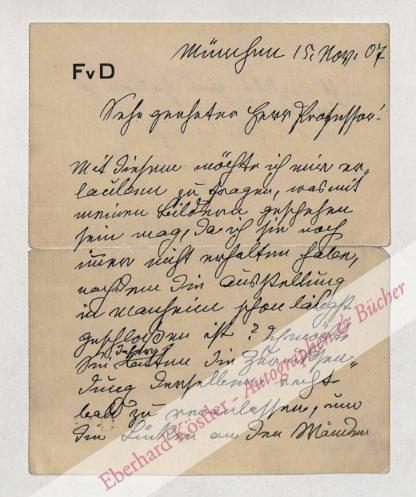 München 15. Nov. 07
FvD
Sehr geehrter Herr Professor!
Mit diesem möchte ich mir er-
lauben zu fragen, was mit
meinen Bildern geschehen
sein mag, da ich sie noch
immer nicht erhalten habe,
nachdem die Ausstellung
in Manheim schon längst
geschloßen ist? Ich möchte
Sie bitten die Zurücksen-
dung derselben recht
bald zu veranlassen, um
die Lücken an den Wänden
Eberhard Köstler - Autographen & Bücher